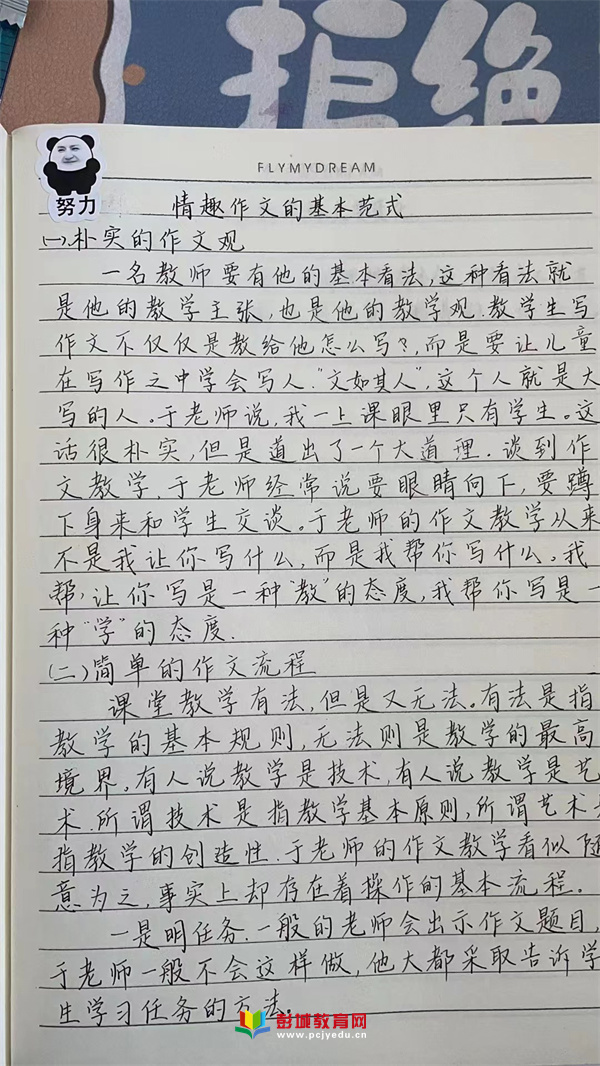 拒绝
FLYMYDREAM
努力
情趣作文的基本范式
(一)朴实的作文观
一名教师要有他的基本看法,这种看法就
是他的教学主张,也是他的教学观.教学生写
作文不仅仅是教给他怎么写?,而是要让儿童
在写作之中学会写人."文如其人",这个人就是大
写的人。于老师说,我一上课眼里只有学生。这
话很朴实,但是道出了一个大道理.谈到作
文教学.于老师经常说要眼睛向下,要蹲
下身来和学生交谈。于老师的作文教学从来
不是我让你写什么,而是我帮你写什么。我
帮,让你写是一种"教"的态度,我帮你写是一
种"学"的态度.
(二)简单的作文流程
课堂教学有法,但是又无法。有法是指
教学的基本规则,无法则是教学的最高
境界。有人说教学是技术,有人说教学是艺
术.所谓技术是指教学基本原则,所谓艺术是
指教学的创造性.于老师的作文教学看似随
意为之,事实上却存在着操作的基本流程。
一是明任务.一般的老师会出示作文题目,
于老师一般不会这样做,他大都采取告诉学
生学习任务的方法。
彭城教育网
www.pcjyedu.cn